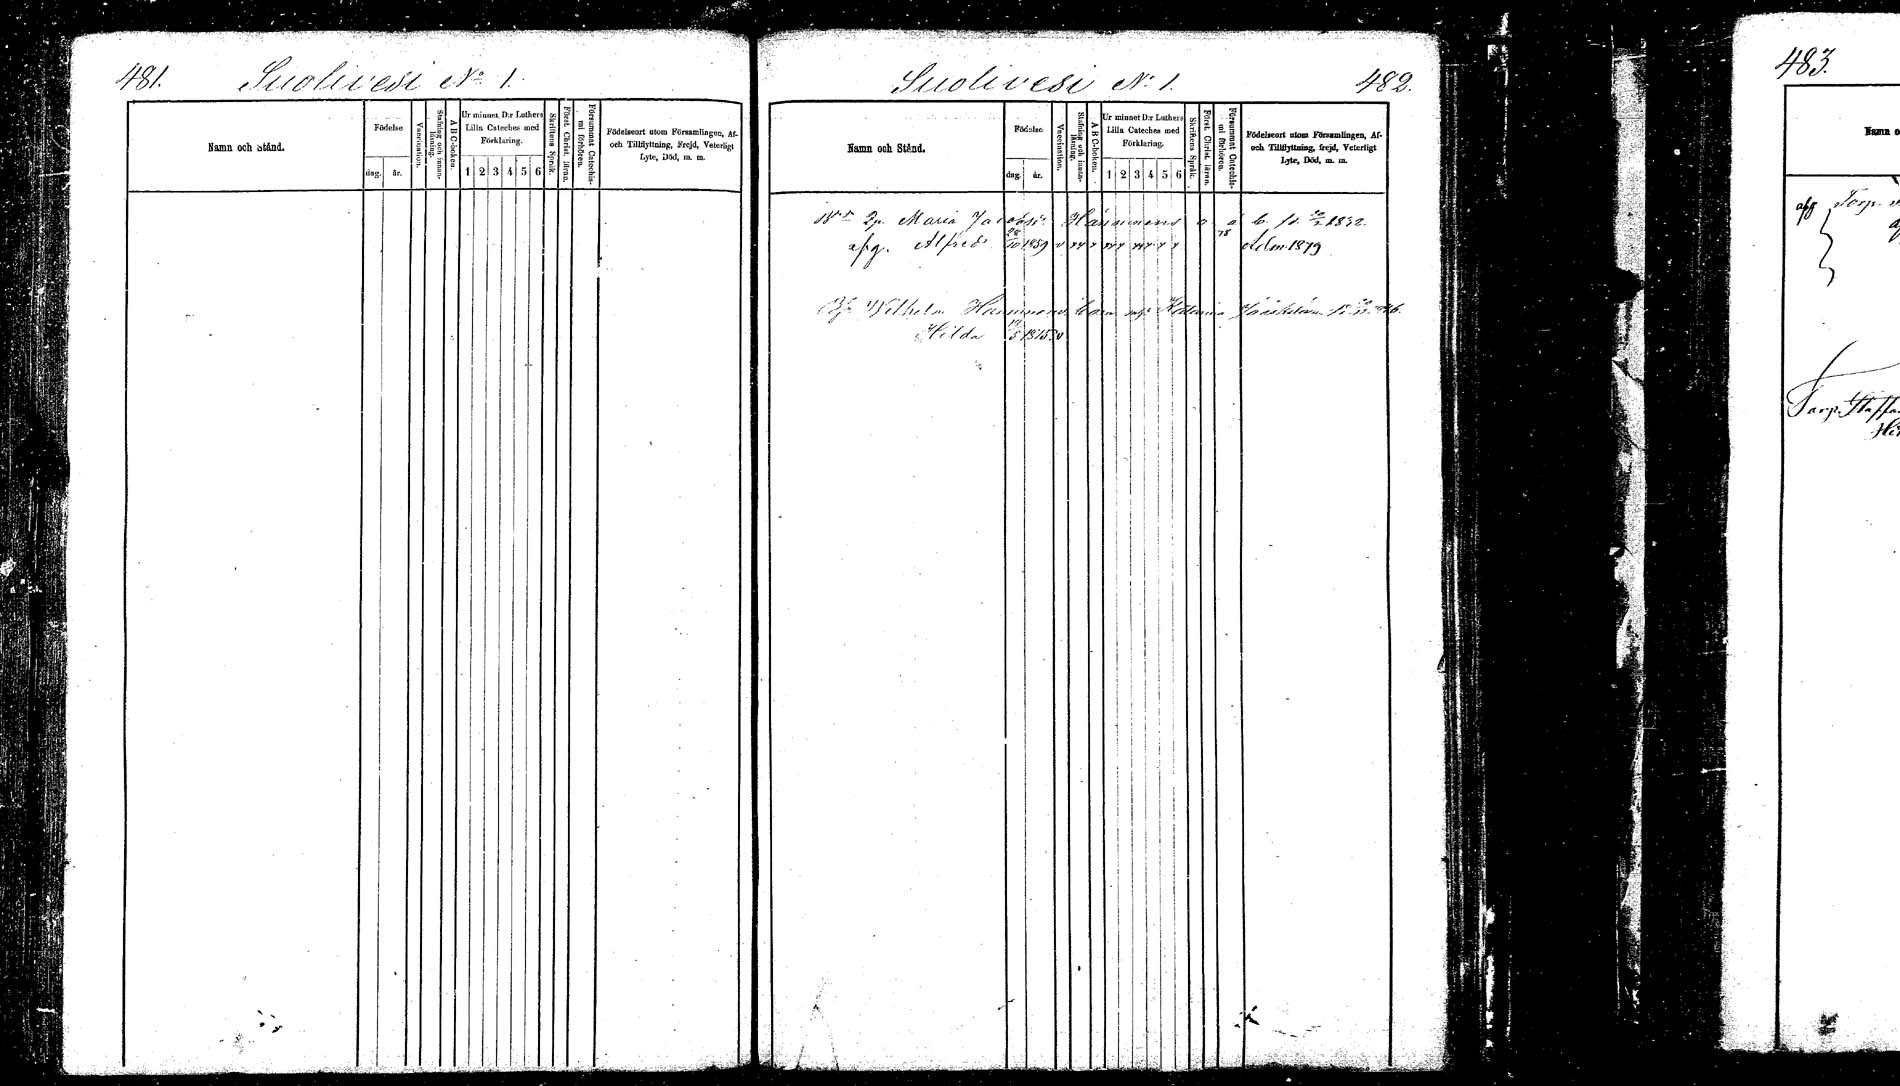 481. Suolivesi No 1.
Namn och Stånd.
Födelse
dag. år.
Vaccination.
Stafning och innan-
läsning.
A B C-boken.
Ur minnet D:r Luthers
Lilla Cateches med
Förklaring.
1 2 3 4 5 6
Skriftens Språk.
Först. Christ. läran.
Försummat Catechis-
mi förhören.
Födelseort utom Församlingen, Af-
och Tillflyttning, Frejd, Veterligt
Lyte, Död, m. m.
Suolivesi No 1. 482.
Namn och Stånd.
Födelse
dag. år.
Vaccination.
Stafning och innan-
läsning.
A B C-boken.
Ur minnet D:r Luthers
Lilla Cateches med
Förklaring.
1 2 3 4 5 6
Skriftens Språk.
Först. Christ. läran.
Försummat Catechis-
mi förhören.
Födelseort utom Församlingen, Af-
och Tillflyttning, frejd, Veterligt
Lyte, Död, m. m.
Maria Hänninens 1832.
Alfred 1859 Adm 1879
Wilhelm Hänninens barn Katarina Jääskeläin.
Hilda 1875
483.
Namn o
Torp.
Torp. Staffa